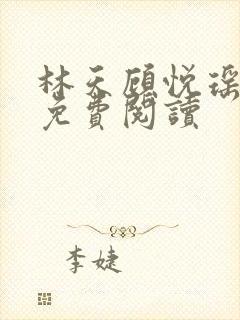 林天顾悦瑶
免費閱讀
李婕